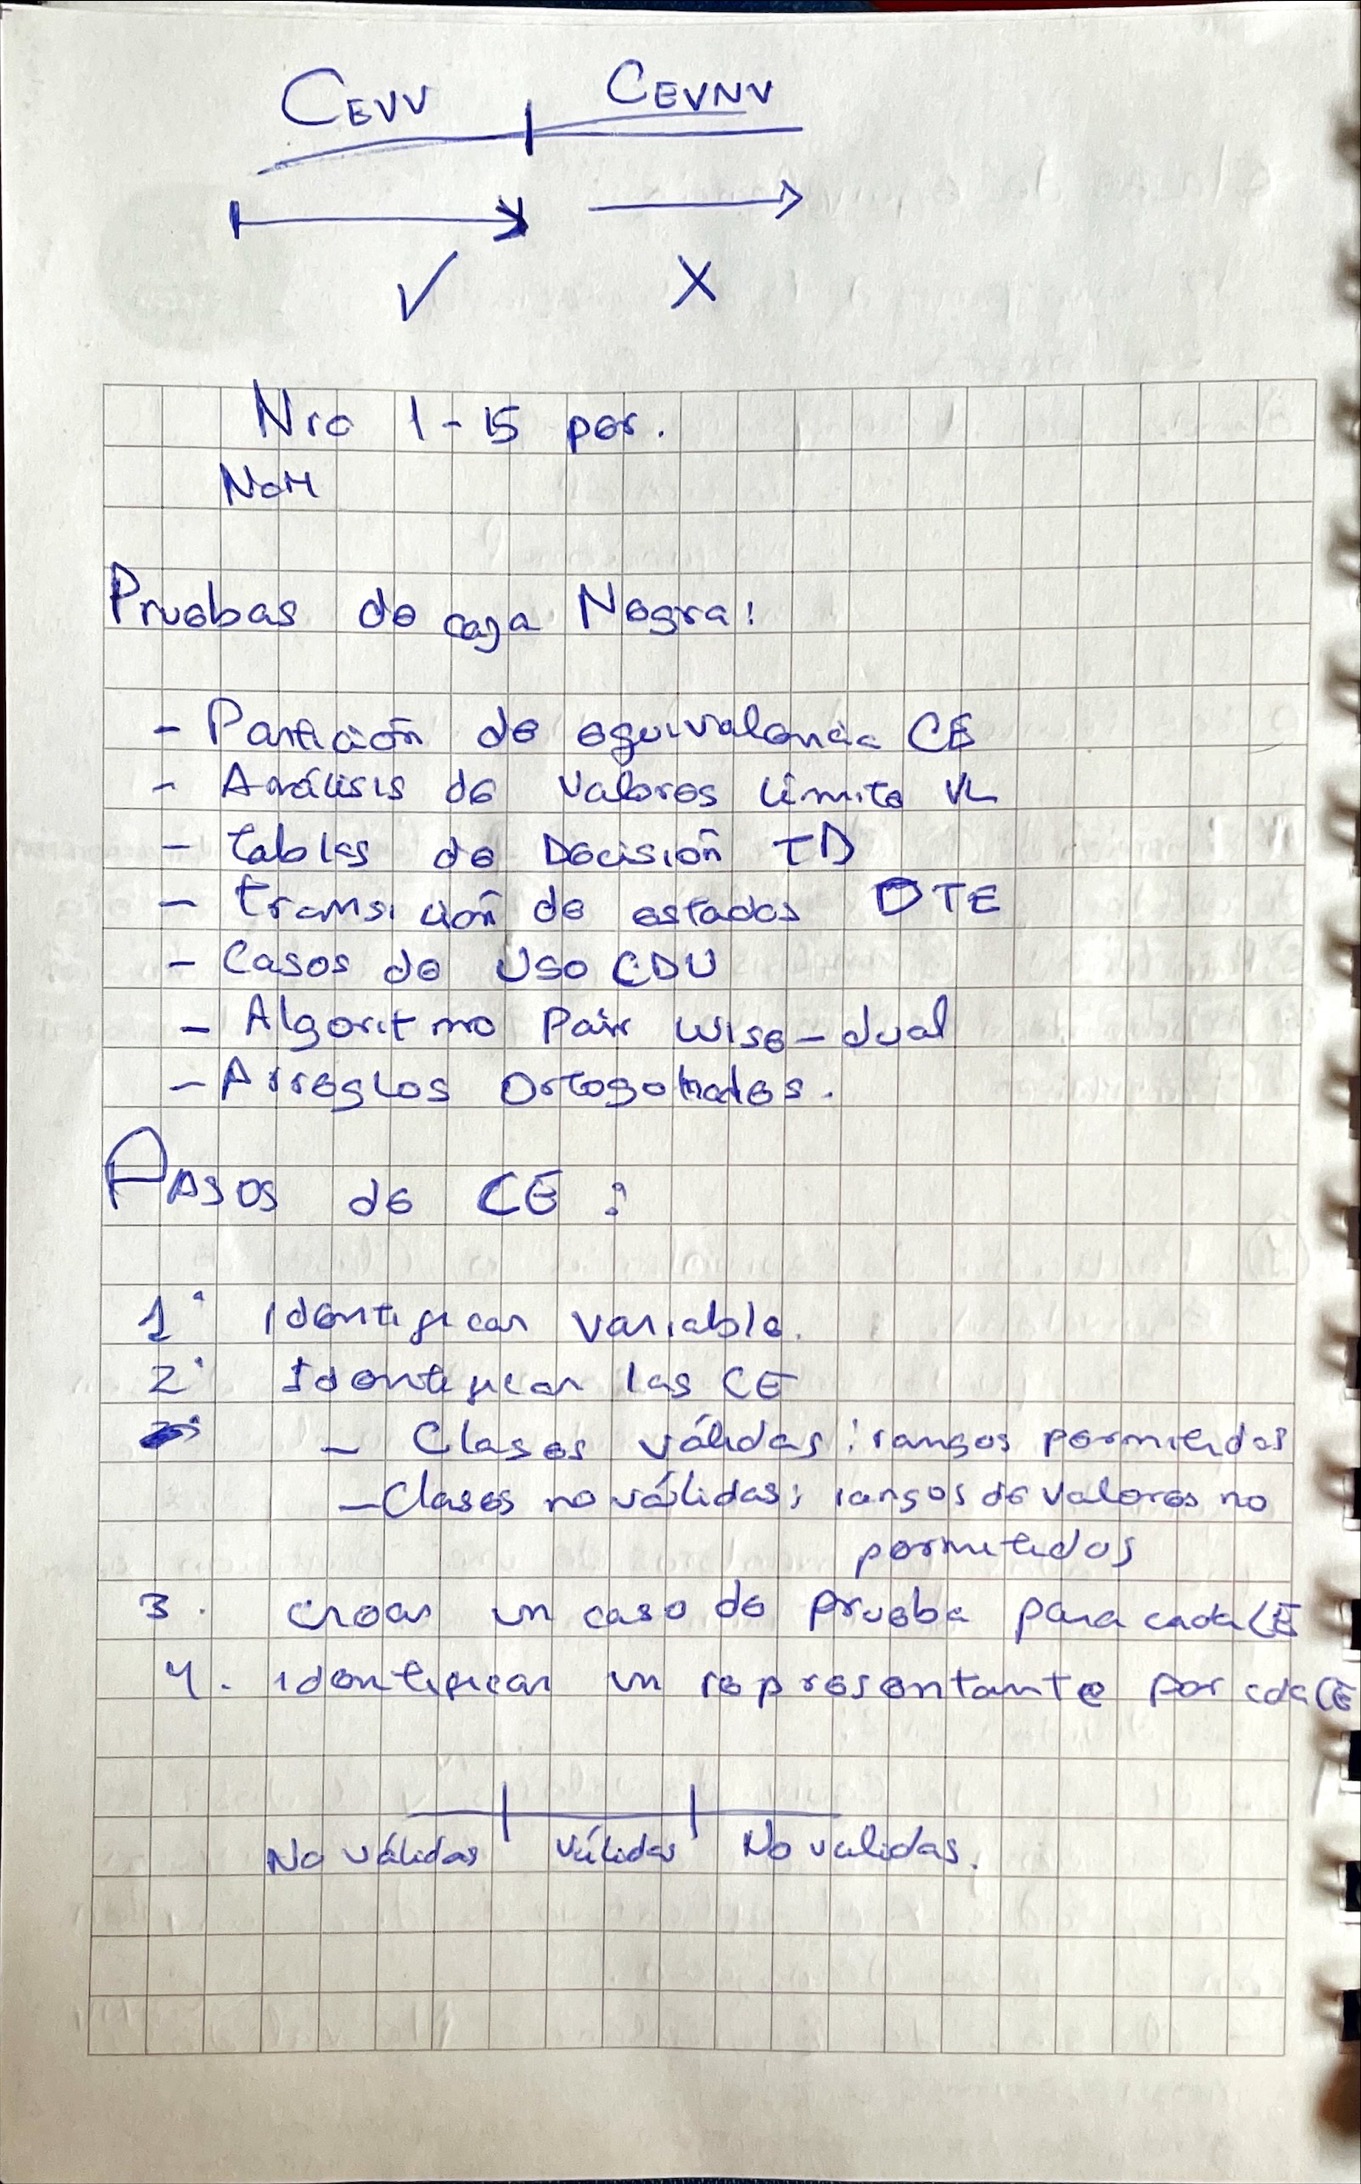 CEVV CEVNV
Nro 1-15 per.
Pruebas de caja Negra:
- Partición de equivalencia CE
- Análisis de Valores límite VL
- tablas de Decisión TD
- transición de estados DTE
- Casos de Uso CDU
- Algoritmo Pair wise-dual
- Arreglos Ortogonales.
PASOS de CE:
1° Identificar variable.
2° Identificar las CE
- Clases válidas: rangos permitidos
- Clases no válidas; rangos de valores no
permitidos
3. crear un caso de prueba para cada CE
4. identificar un representante por cda CE
No válidas válidas No validas.